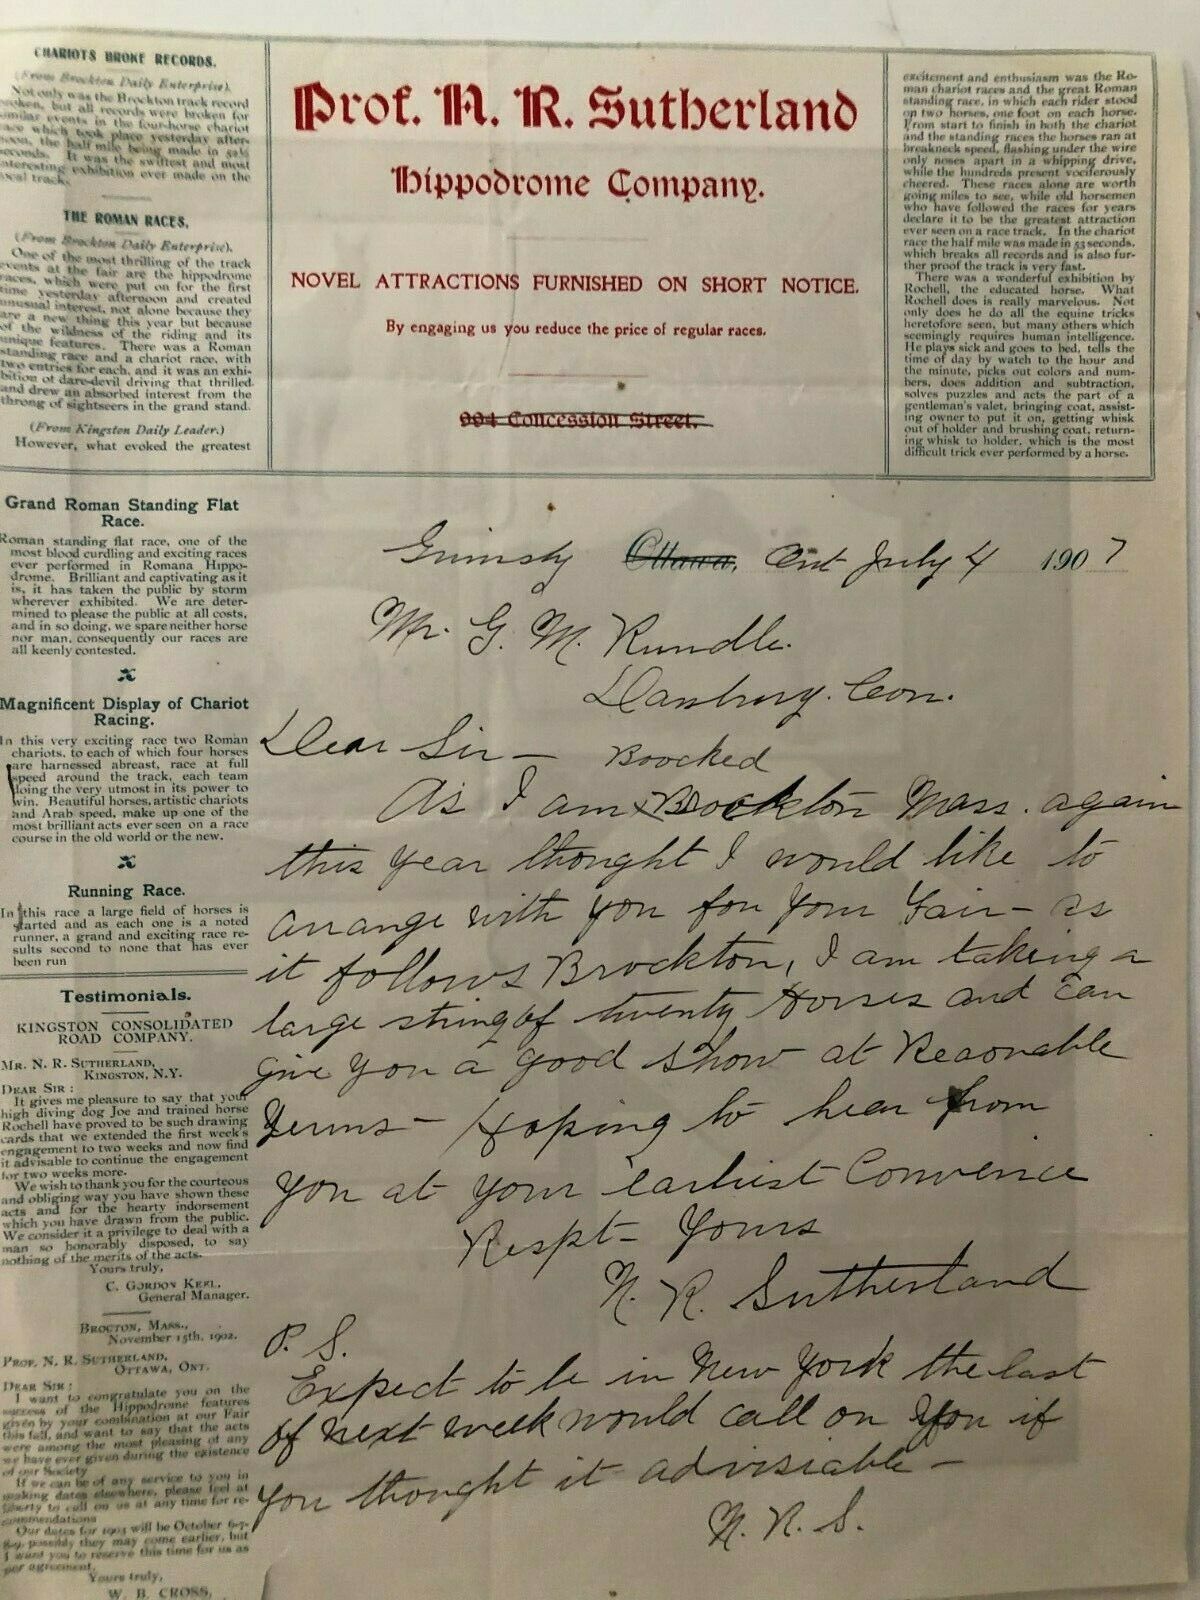 CHARIOTS BROKE RECORDS.
(From Brockton Daily Enterprise).
Not only was the Brockton track record
broken, but all records were broken for
similar events in the four-horse chariot
race which took place yesterday after-
noon, the half mile being made in 52½
seconds. It was the swiftest and most
interesting exhibition ever made on the
local track.
THE ROMAN RACES.
(From Brockton Daily Enterprise).
One of the most thrilling of the track
events at the fair are the hippodrome
races, which were put on for the first
time yesterday afternoon and created
unusual interest, not alone because they
are a new thing this year but because
of the wildness of the riding and its
unique features. There was a Roman
standing race and a chariot race, with
two entries for each, and it was an exhi-
bition of dare-devil driving that thrilled
and drew an absorbed interest from the
throng of sightseers in the grand stand.
(From Kingston Daily Leader.)
However, what evoked the greatest
Prof. N. R. Sutherland
Hippodrome Company.
NOVEL ATTRACTIONS FURNISHED ON SHORT NOTICE.
By engaging us you reduce the price of regular races.
994 Concession Street.
excitement and enthusiasm was the Ro-
man chariot races and the great Roman
standing race, in which each rider stood
op two horses, one foot on each horse.
From start to finish in both the chariot
and the standing races the horses ran at
breakneck speed, flashing under the wire
only noses apart in a whipping drive,
while the hundreds present vociferously
cheered. These races alone are worth
going miles to see, while old horsemen
who have followed the races for years
declare it to be the greatest attraction
ever seen on a race track. In the chariot
race the half mile was made in 53 seconds,
which breaks all records and is also fur-
ther proof the track is very fast.
There was a wonderful exhibition by
Rochell, the educated horse. What
Rochell does is really marvelous. Not
only does he do all the equine tricks
heretofore seen, but many others which
seemingly requires human intelligence.
He plays sick and goes to bed, tells the
time of day by watch to the hour and
the minute, picks out colors and num-
bers, does addition and subtraction,
solves puzzles and acts the part of a
gentleman's valet, bringing coat, assist-
ing owner to put it on, getting whisk
out of holder and brushing coat, return-
ing whisk to holder, which is the most
difficult trick ever performed by a horse.
Grand Roman Standing Flat
Race.
Roman standing flat race, one of the
most blood curdling and exciting races
ever performed in Romana Hippo-
drome. Brilliant and captivating as it
is, it has taken the public by storm
wherever exhibited. We are deter-
mined to please the public at all costs,
and in so doing, we spare neither horse
nor man, consequently our races are
all keenly contested.
Magnificent Display of Chariot
Racing.
In this very exciting race two Roman
chariots, to each of which four horses
are harnessed abreast, race at full
speed around the track, each team
doing the very utmost in its power to
win. Beautiful horses, artistic chariots
and Arab speed, make up one of the
most brilliant acts ever seen on a race
course in the old world or the new.
Running Race.
In this race a large field of horses is
started and as each one is a noted
runner, a grand and exciting race re-
sults second to none that has ever
been run
Testimonials.
KINGSTON CONSOLIDATED
ROAD COMPANY.
MR. N. R. SUTHERLAND,
KINGSTON, N.Y.
DEAR SIR:
It gives me pleasure to say that your
high diving dog Joe and trained horse
Rochell have proved to be such drawing
cards that we extended the first week's
engagement to two weeks and now find
it advisable to continue the engagement
for two weeks more.
We wish to thank you for the courteous
and obliging way you have shown these
acts and for the hearty indorsement
which you have drawn from the public.
We consider it a privilege to deal with a
man so honorably disposed, to say
nothing of the merits of the acts.
Yours truly,
C. GORDON
General Manager.
BROCTON, MASS.,
November 15th, 1902.
PROF. N. R. SUTHERLAND,
OTTAWA, ONT.
DEAR SIR:
I want to congratulate you on the
success of the Hippodrome features
given by your combination at our Fair
this fall, and want to say that the acts
were among the most pleasing of any
we have ever given during the existence
of our Society
If we can be of any service to you in
making dates elsewhere, please feel at
liberty to call on us at any time for re-
commendations
Our dates for 1903 will be October 6-7-
8-9, possibly they may come earlier, but
I want you to reserve this time for us as
per agreement.
Yours truly,
W. B. CROSS,
Grimsby Ottawa, Ont July 4 1907
Mr. G. M. Rundle.
Danbury. Con.
Dear Sir —
Boocked
As I am x Brockton Mass. again
this year thought I would like to
arrange with you for your Fair — as
it follows Brockton, I am taking a
large string of twenty Horses and can
give you a good show at Reasonable
Terms — Hoping to hear from
you at your earliest Convenice
Respt — Yours
N. R. Sutherland
P. S.
Expect to be in New York the last
of next week would call on you if
you thought it advisiable —
N. R. S.